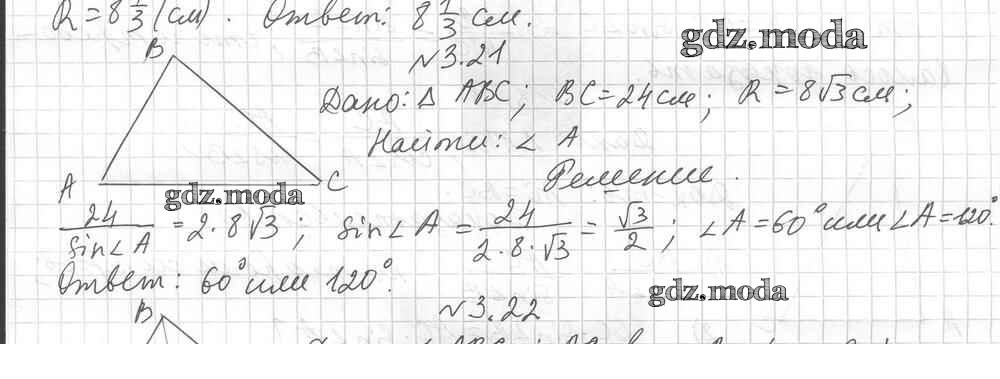 R = 8 1/3 (см). Ответ: 8 1/3 см.
gdz.moda
№3.21
B
Дано: Δ ABC; BC = 24 см; R = 8√3 см;
Найти: ∠ A
Решение.
A
C
gdz.moda
24/sin∠A = 2·8√3; sin∠A = 24/(2·8·√3) = √3/2; ∠A = 60° или ∠A = 120°.
Ответ: 60° или 120°.
gdz.moda
B
№3.22